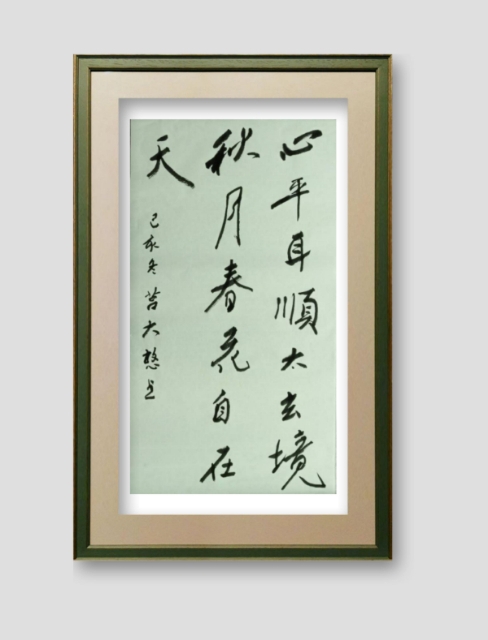 心平耳順太玄境
秋月春花自在
天
己亥冬大